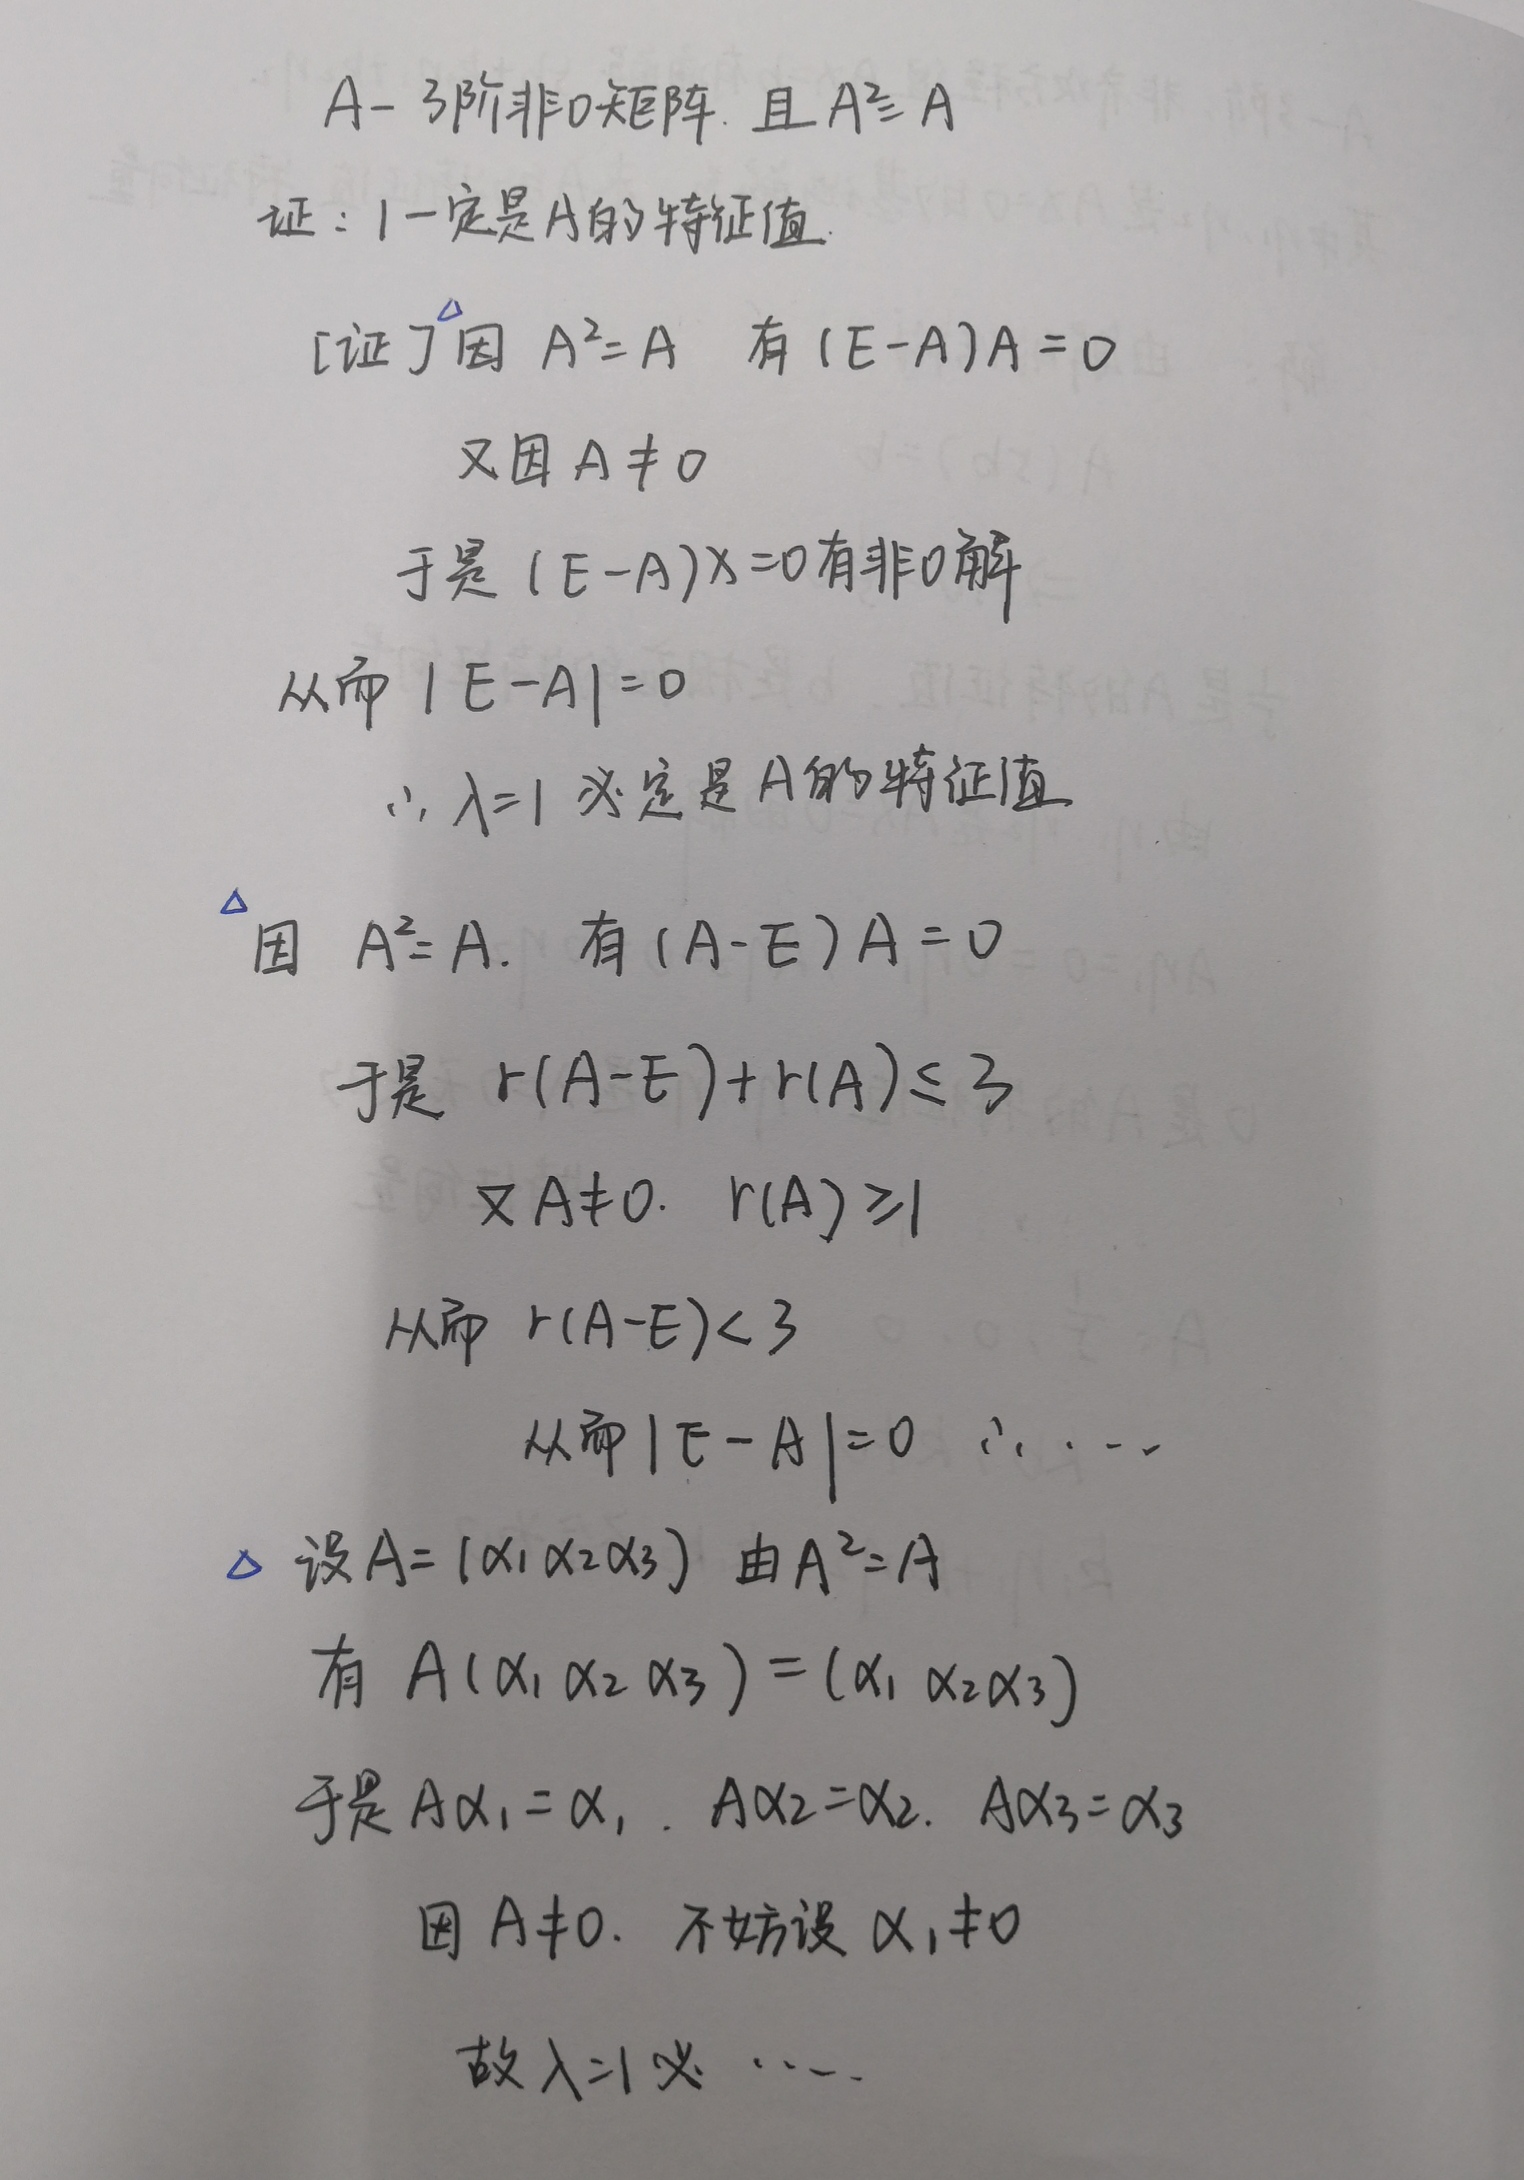 A-3阶非0矩阵. 且A²=A
证：1一定是A的特征值.
[证]△因 A²=A 有(E-A)A=0
又因A≠0
于是(E-A)x=0有非0解
从而 |E-A|=0
∴ λ=1 必定是A的特征值
△因 A²=A. 有(A-E)A=0
于是 r(A-E)+r(A)≤3
又A≠0. r(A)≥1
从而 r(A-E)<3
从而|E-A|=0 ∴ ....
△ 设A=(α₁ α₂ α₃) 由A²=A
有 A(α₁ α₂ α₃)=(α₁ α₂ α₃)
于是Aα₁=α₁. Aα₂=α₂. Aα₃=α₃
因A≠0. 不妨设 α₁≠0
故λ=1必 .....